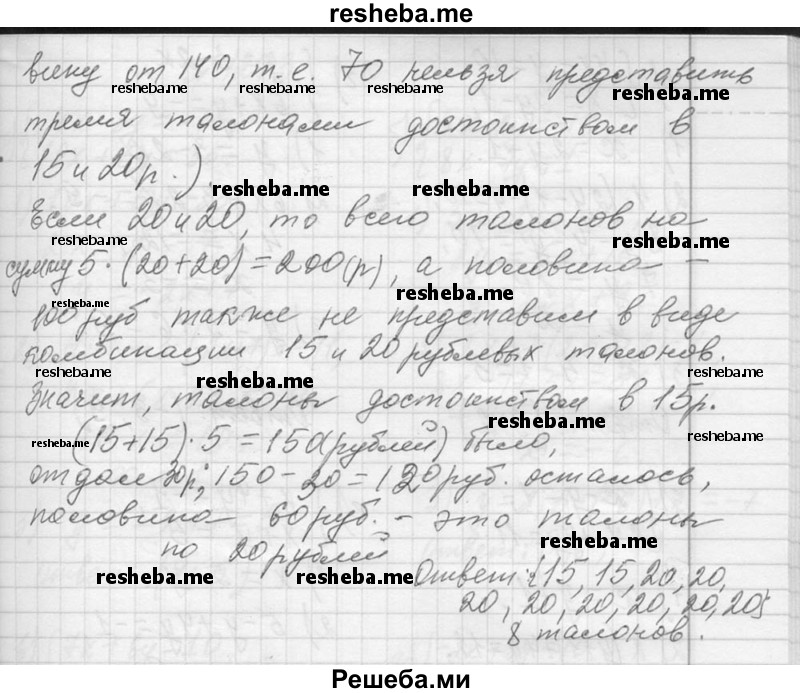 resheba.me
вину от 140, т.е. 70 нельзя представить
resheba.me resheba.me resheba.me resheba.me
тремя талонами достоинством в
15 и 20р.)
resheba.me resheba.me
Если 20 и 20, то всего талонов на
resheba.me resheba.me
сумму 5·(20+20)=200(р), а половина –
resheba.me resheba.me
100 руб также не представим в виде
комбинации 15 и 20 рублевых талонов.
resheba.me resheba.me resheba.me
Значит, талоны достоинством в 15р.
resheba.me resheba.me resheba.me
(15+15)·5=150(рублей) было,
отдал 30р; 150-30=120 руб. осталось,
половина 60 руб. – это талоны
resheba.me
по 20 рублей
resheba.me resheba.me
Ответ: {15, 15, 20, 20,
20, 20, 20, 20, 20, 20}
8 талонов.
Решеба.ми